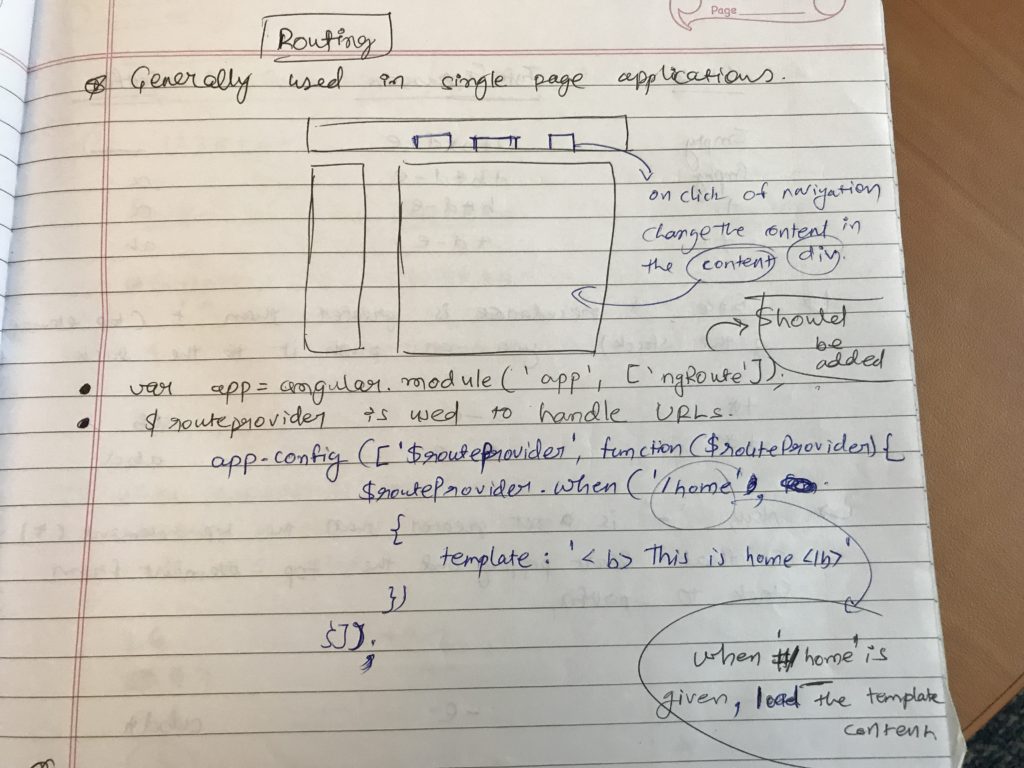 Page
Routing
Generally used in single page applications.
on click of navigation
change the content in
the content div.
Should
be
added
• var app = angular.module('app', ['ngRoute']);
• $routeprovider is used to handle URLs.
app.config(['$routeProvider', function($routeProvider){
$routeProvider.when('/home',
{
template: '<b> This is home</b>'
})
}]);
when '#/home' is
given, load the template
content